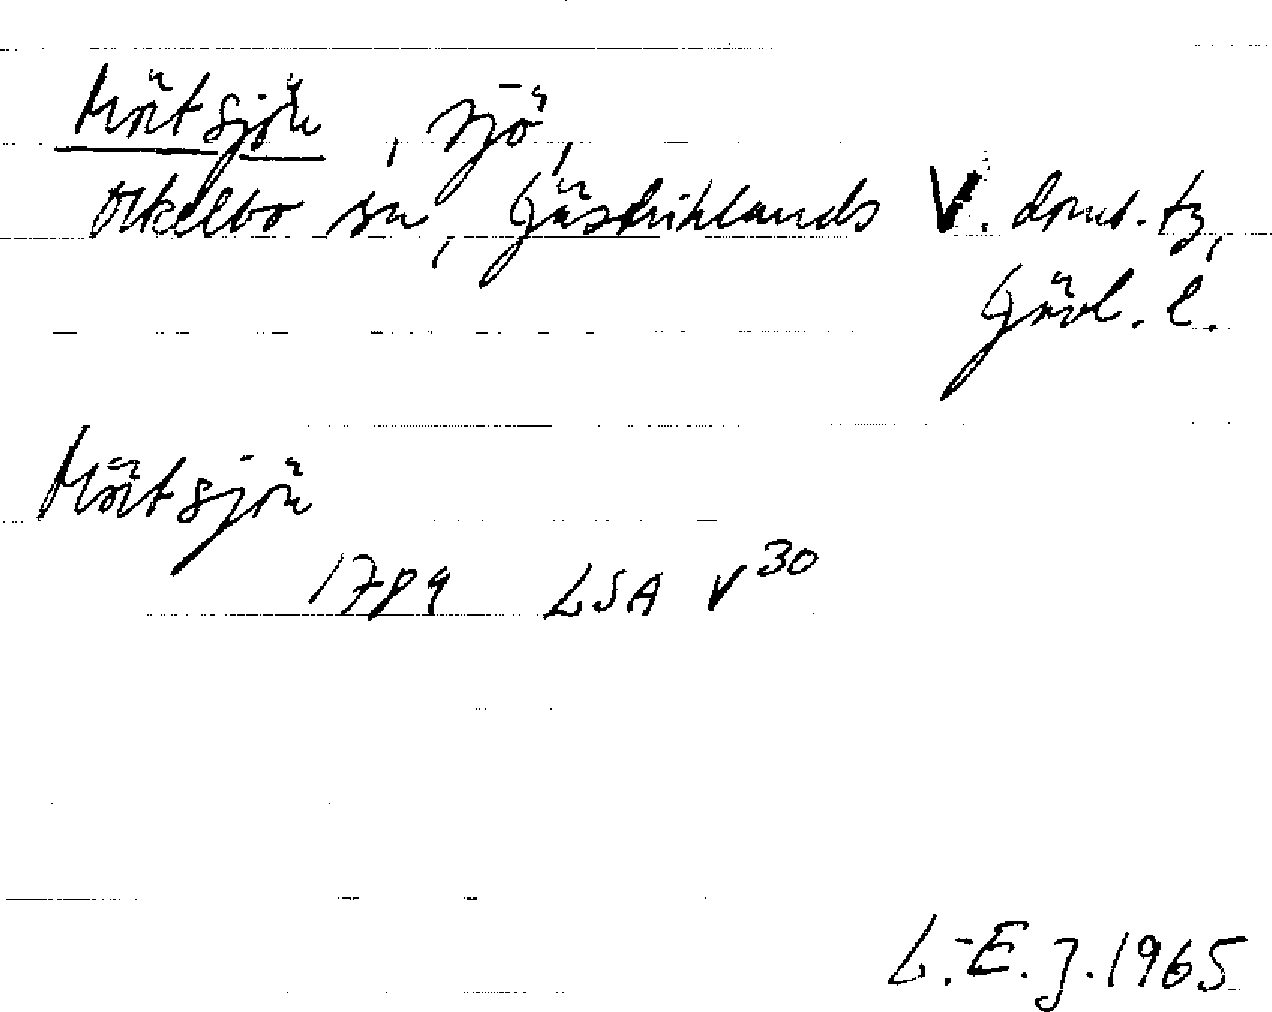 Mötsjön, sjö,
Ockelbo sn, Gästriklands V. doms. tg,
Gävl. l.
Mötsjön
1789 LSA V30
L.-E. J. 1965